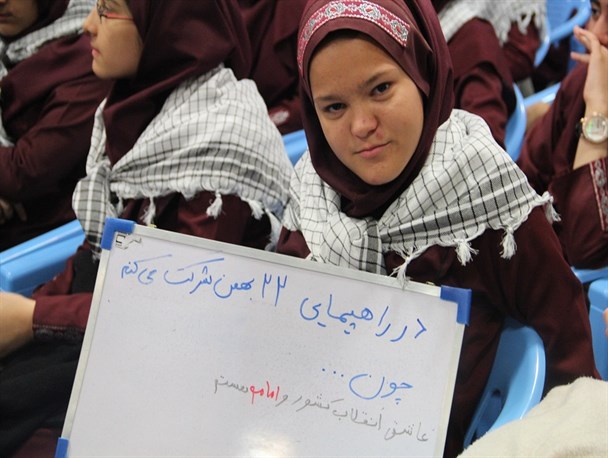 در راهپیمایی ۲۲ بهمن شرکت می کنم
چون...
عاشق انقلاب کشور و امامم هستم